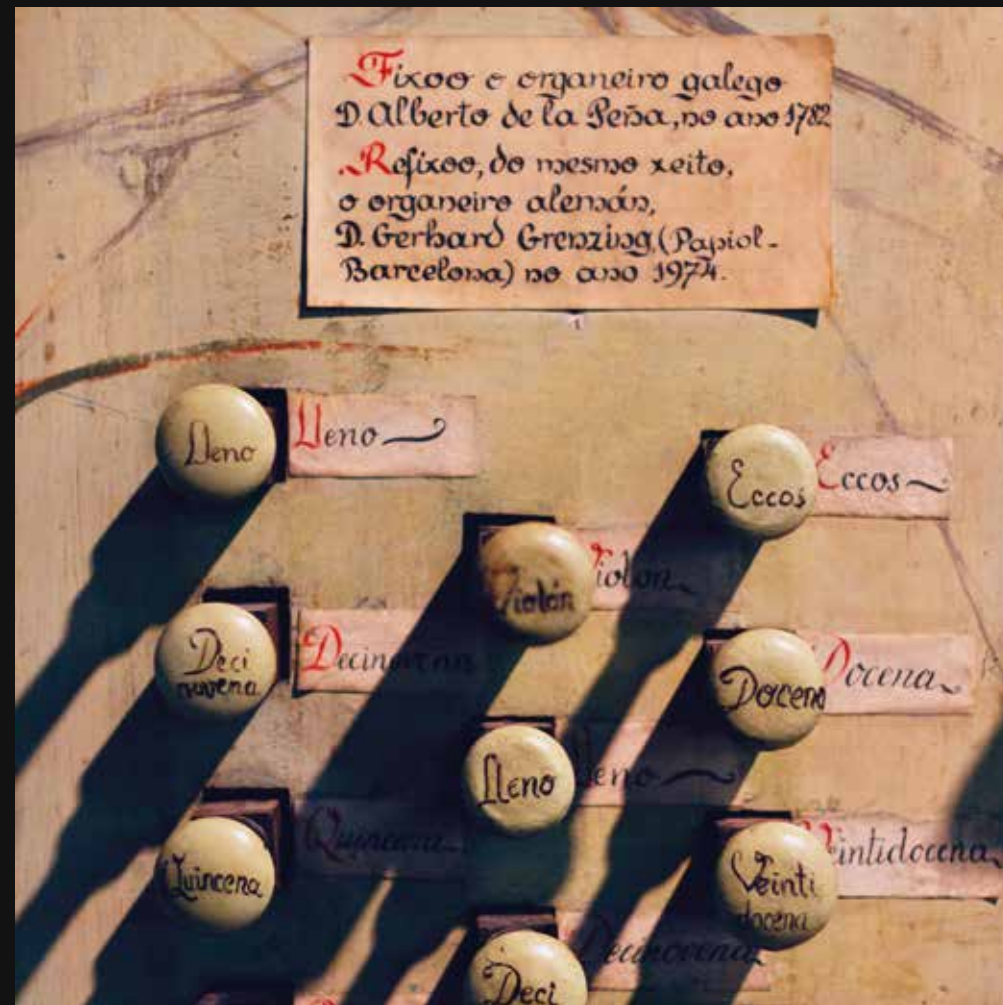 Fixoo o organeiro galego
D. Alberto de la Peña, no ano 1782
Refixoo, do mesmo xeito,
o organeiro alemán,
D. Gerhard Grenzing, (Papiol-
Barcelona) no ano 1974.
Lleno
Lleno
Eccos
Eccos
Violón
Violón
Deci
novena
Decinovena
Docena
Docena
Lleno
Lleno
Quincena
Quincena
Veinti
docena
Veintidocena
Deci
Decinovena